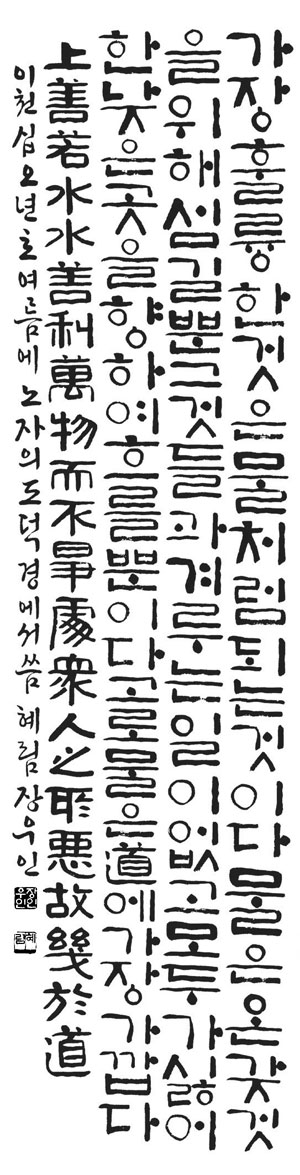 가장훌륭한것은물처럼되는것이다물은온갖것
을위해섬길뿐그것들과겨루는일이없고모두가싫어
한낮은곳을향하여흐를뿐이다고로물은道에가장가깝다
上善若水水善利萬物而不爭處衆人之所惡故幾於道
이천십오년초여름에노자의도덕경에서씀혜림장우인